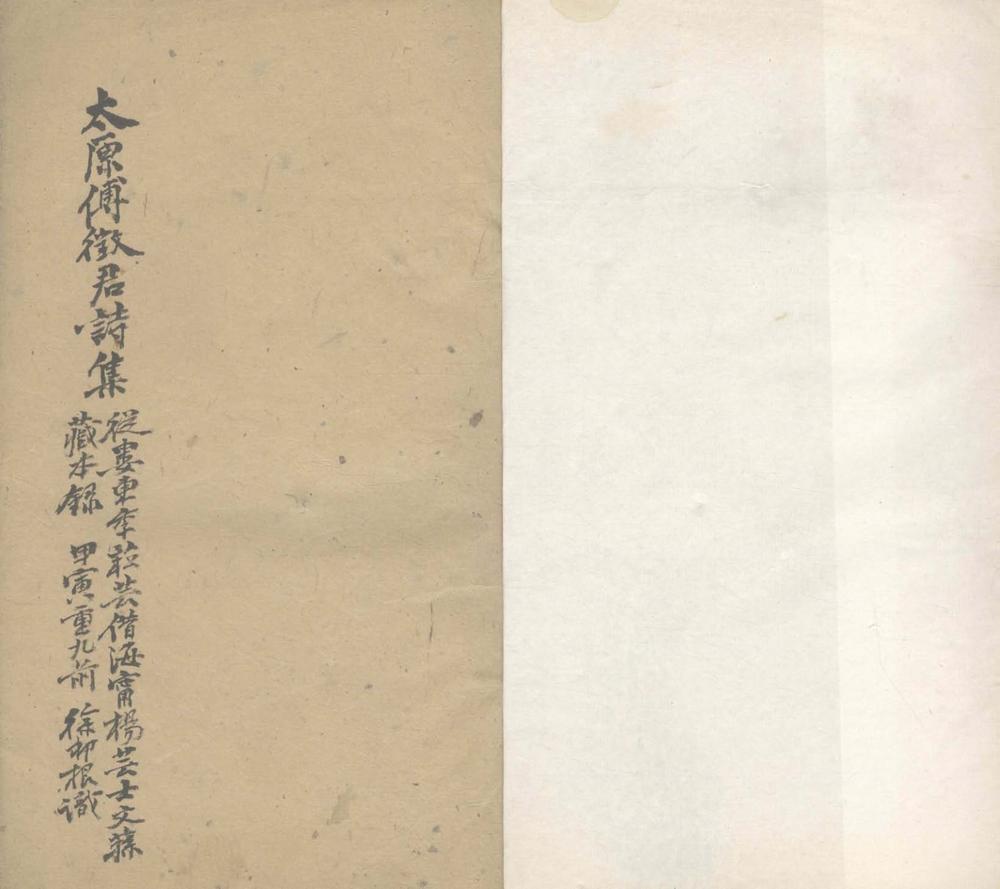 太原傅徵君詩集
從婁東季菘芸借海甯楊芸士文蓀
藏本錄 甲寅重九前 徐卬根識